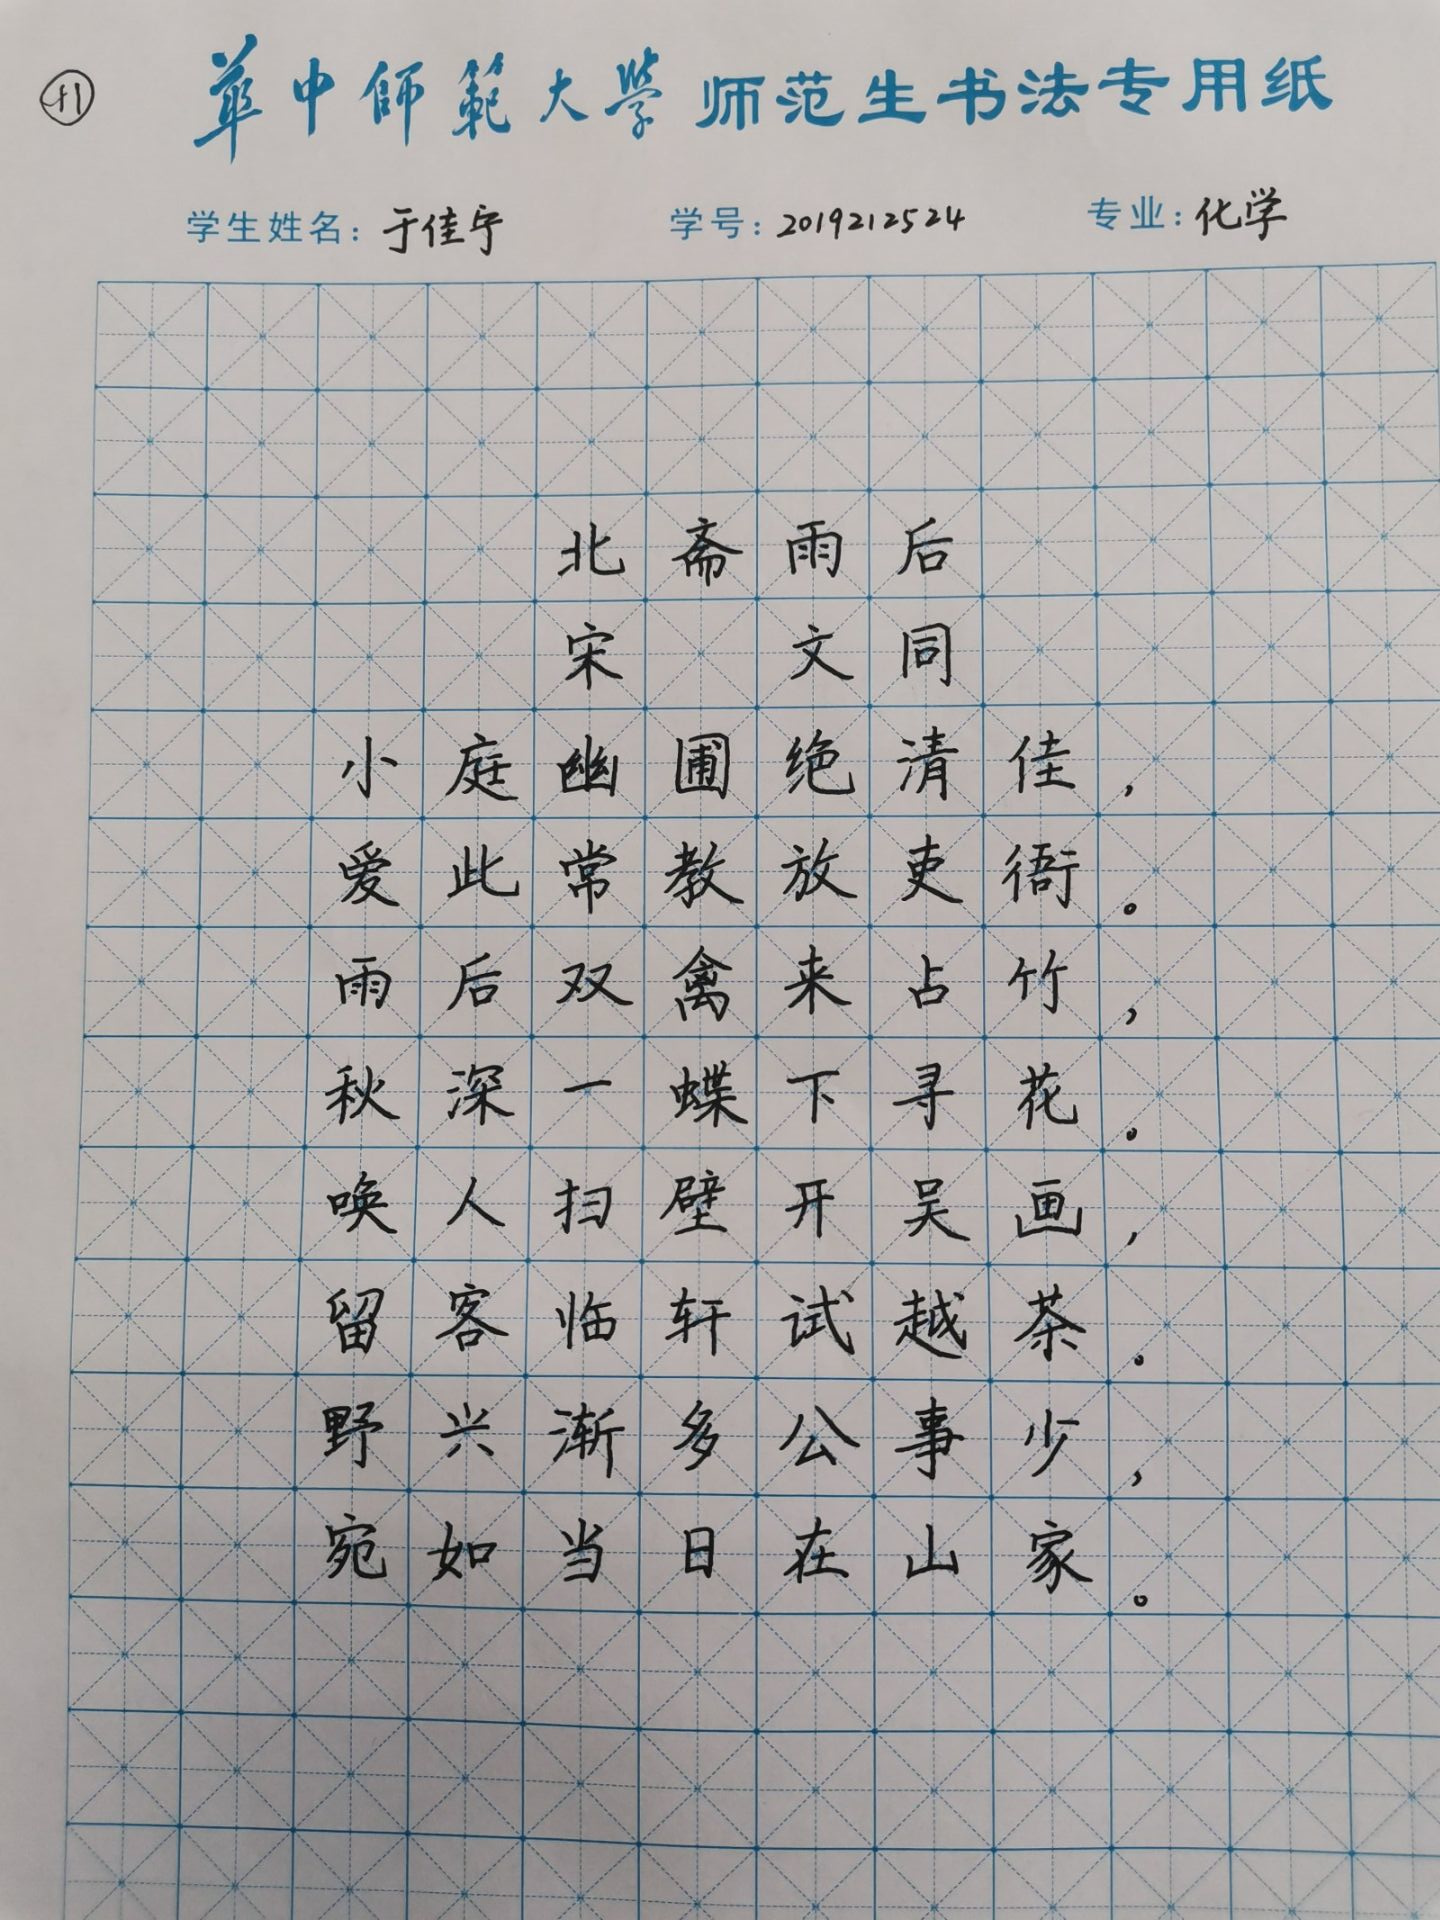 華中師範大學师范生书法专用纸
学生姓名：于佳宁 学号：2019212524 专业：化学
北斋雨后
宋 文同
小庭幽圃绝清佳，
爱此常教放吏衙。
雨后双禽来占竹，
秋深一蝶下寻花。
唤人扫壁开吴画，
留客临轩试越茶。
野兴渐多公事少，
宛如当日在山家。